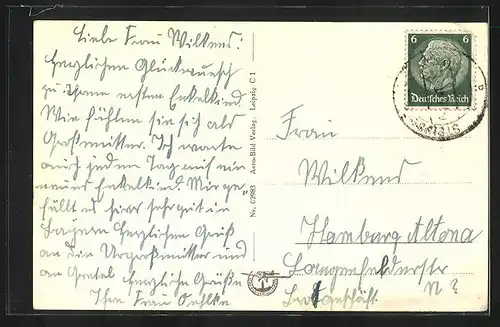 Liebe Frau Wilkens!
Herzlichen Glückwunsch
zu Ihrem ersten Enkelkind
Wie fühlen Sie sich als
Großmutter. Ich warte
auch jeden Tag auf ein
neues Enkelkind. Mir ge-
fällt es hier sehr gut in
Bayern herzlichen Gruß
an die Urgroßmutter und
an Gretel herzliche Grüße
Ihre Frau Oehlke
Nr. 62983 Aero-Bild Verlag, Leipzig C 1
6 6
Deutsches Reich
Frau
Wilkens
Hamburg Altona
Langenfelderstr
N?
Brotgeschäft.